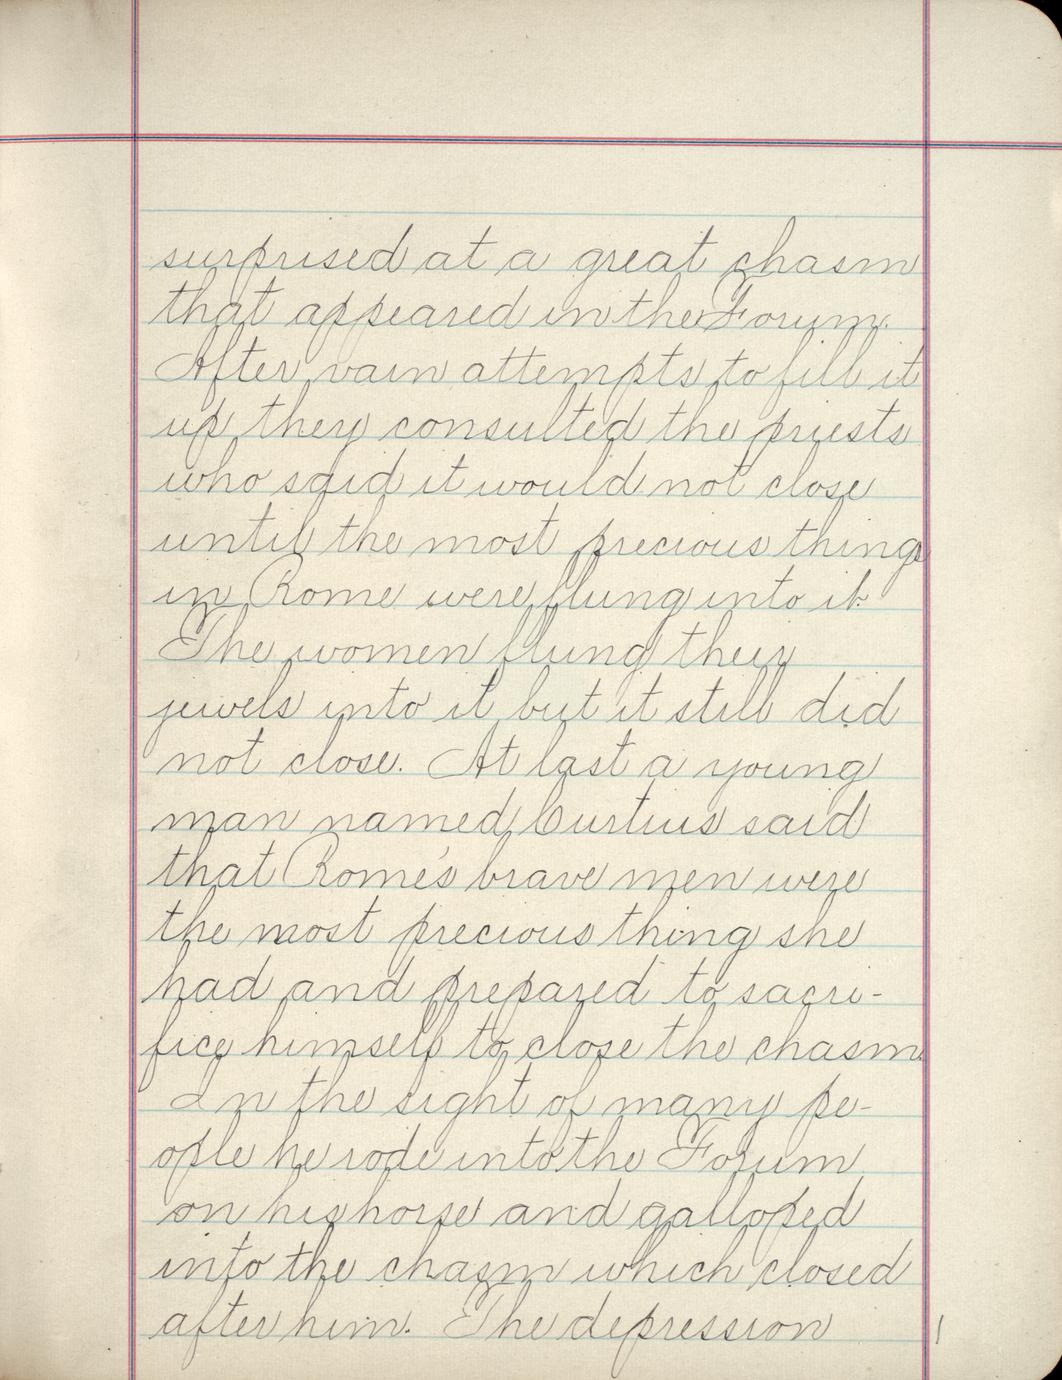 surprised at a great chasm
that appeared in the Forum.
After vain attempts to fill it
up they consulted the priests
who said it would not close
until the most precious things
in Rome were flung into it.
The women flung their
jewels into it but it still did
not close. At last a young
man named Curtius said
that Rome's brave men were
the most precious thing she
had and prepared to sacri-
fice himself to close the chasm.
In the sight of many pe-
ople he rode into the Forum
on his horse and galloped
into the chasm which closed
after him. The depression